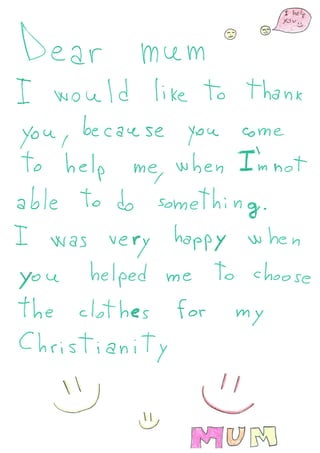 I help
you
Dear mum
I would like to thank
you, because you come
to help me, when I'm not
able to do something.
I was very happy when
you helped me to choose
the clothes for my
Christianity
MUM